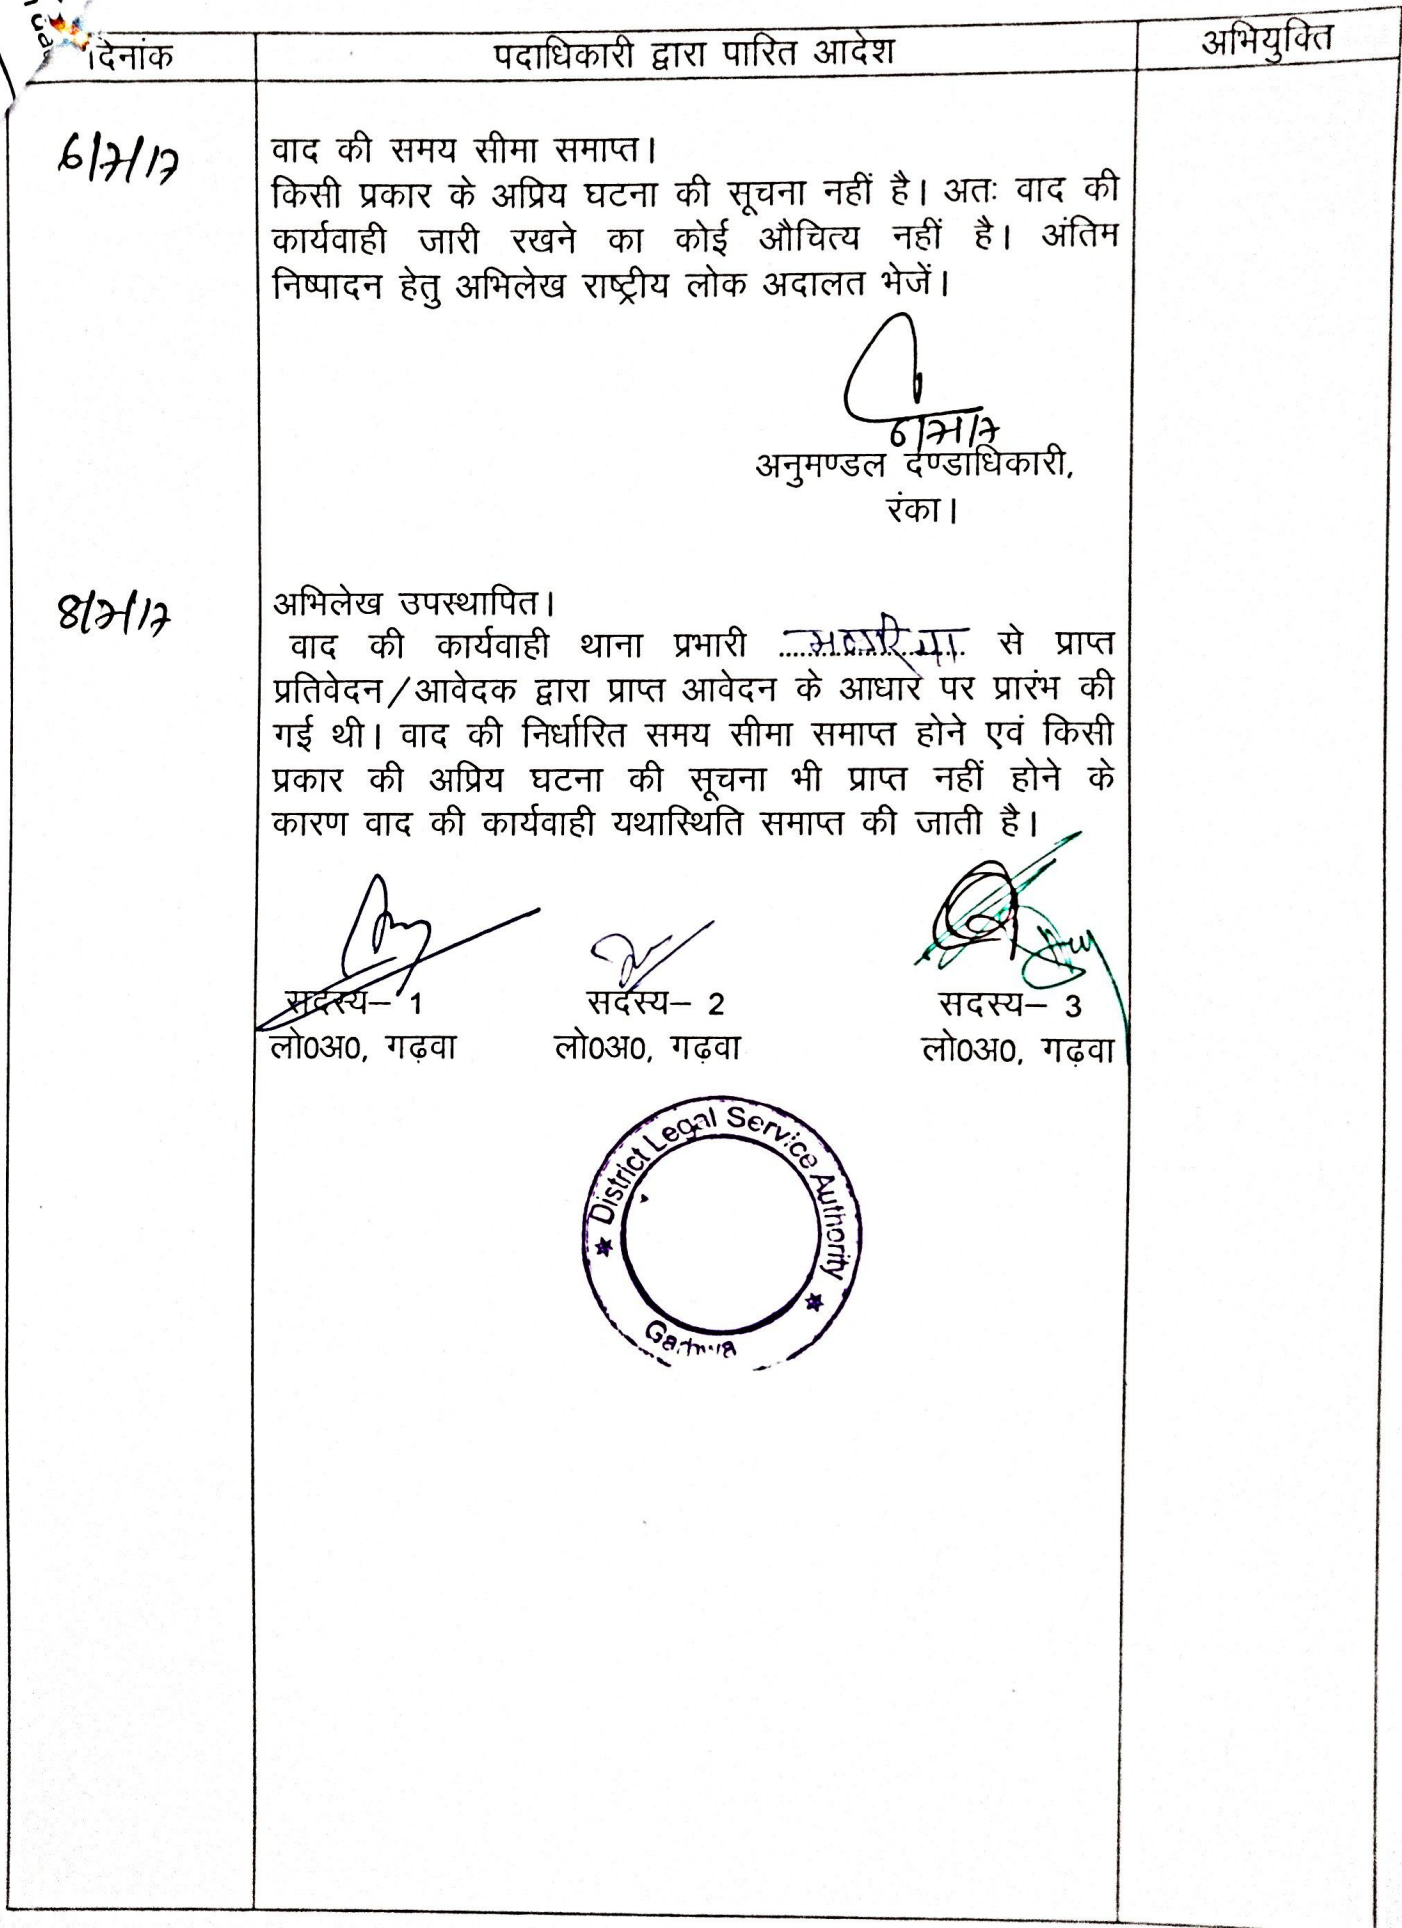 दिनांक
पदाधिकारी द्वारा पारित आदेश
अभियुक्ति
6/7/17
वाद की समय सीमा समाप्त।
किसी प्रकार के अप्रिय घटना की सूचना नहीं है। अतः वाद की
कार्यवाही जारी रखने का कोई औचित्य नहीं है। अंतिम
निष्पादन हेतु अभिलेख राष्ट्रीय लोक अदालत भेजें।
6/7/17
अनुमण्डल दण्डाधिकारी,
रंका।
8/7/17
अभिलेख उपस्थापित।
वाद की कार्यवाही थाना प्रभारी से प्राप्त
प्रतिवेदन/आवेदक द्वारा प्राप्त आवेदन के आधार पर प्रारंभ की
गई थी। वाद की निर्धारित समय सीमा समाप्त होने एवं किसी
प्रकार की अप्रिय घटना की सूचना भी प्राप्त नहीं होने के
कारण वाद की कार्यवाही यथास्थिति समाप्त की जाती है।
सदस्य– 1 सदस्य– 2 सदस्य– 3
लो0अ0, गढ़वा लो0अ0, गढ़वा लो0अ0, गढ़वा
District Legal Service Authority
Garhwa